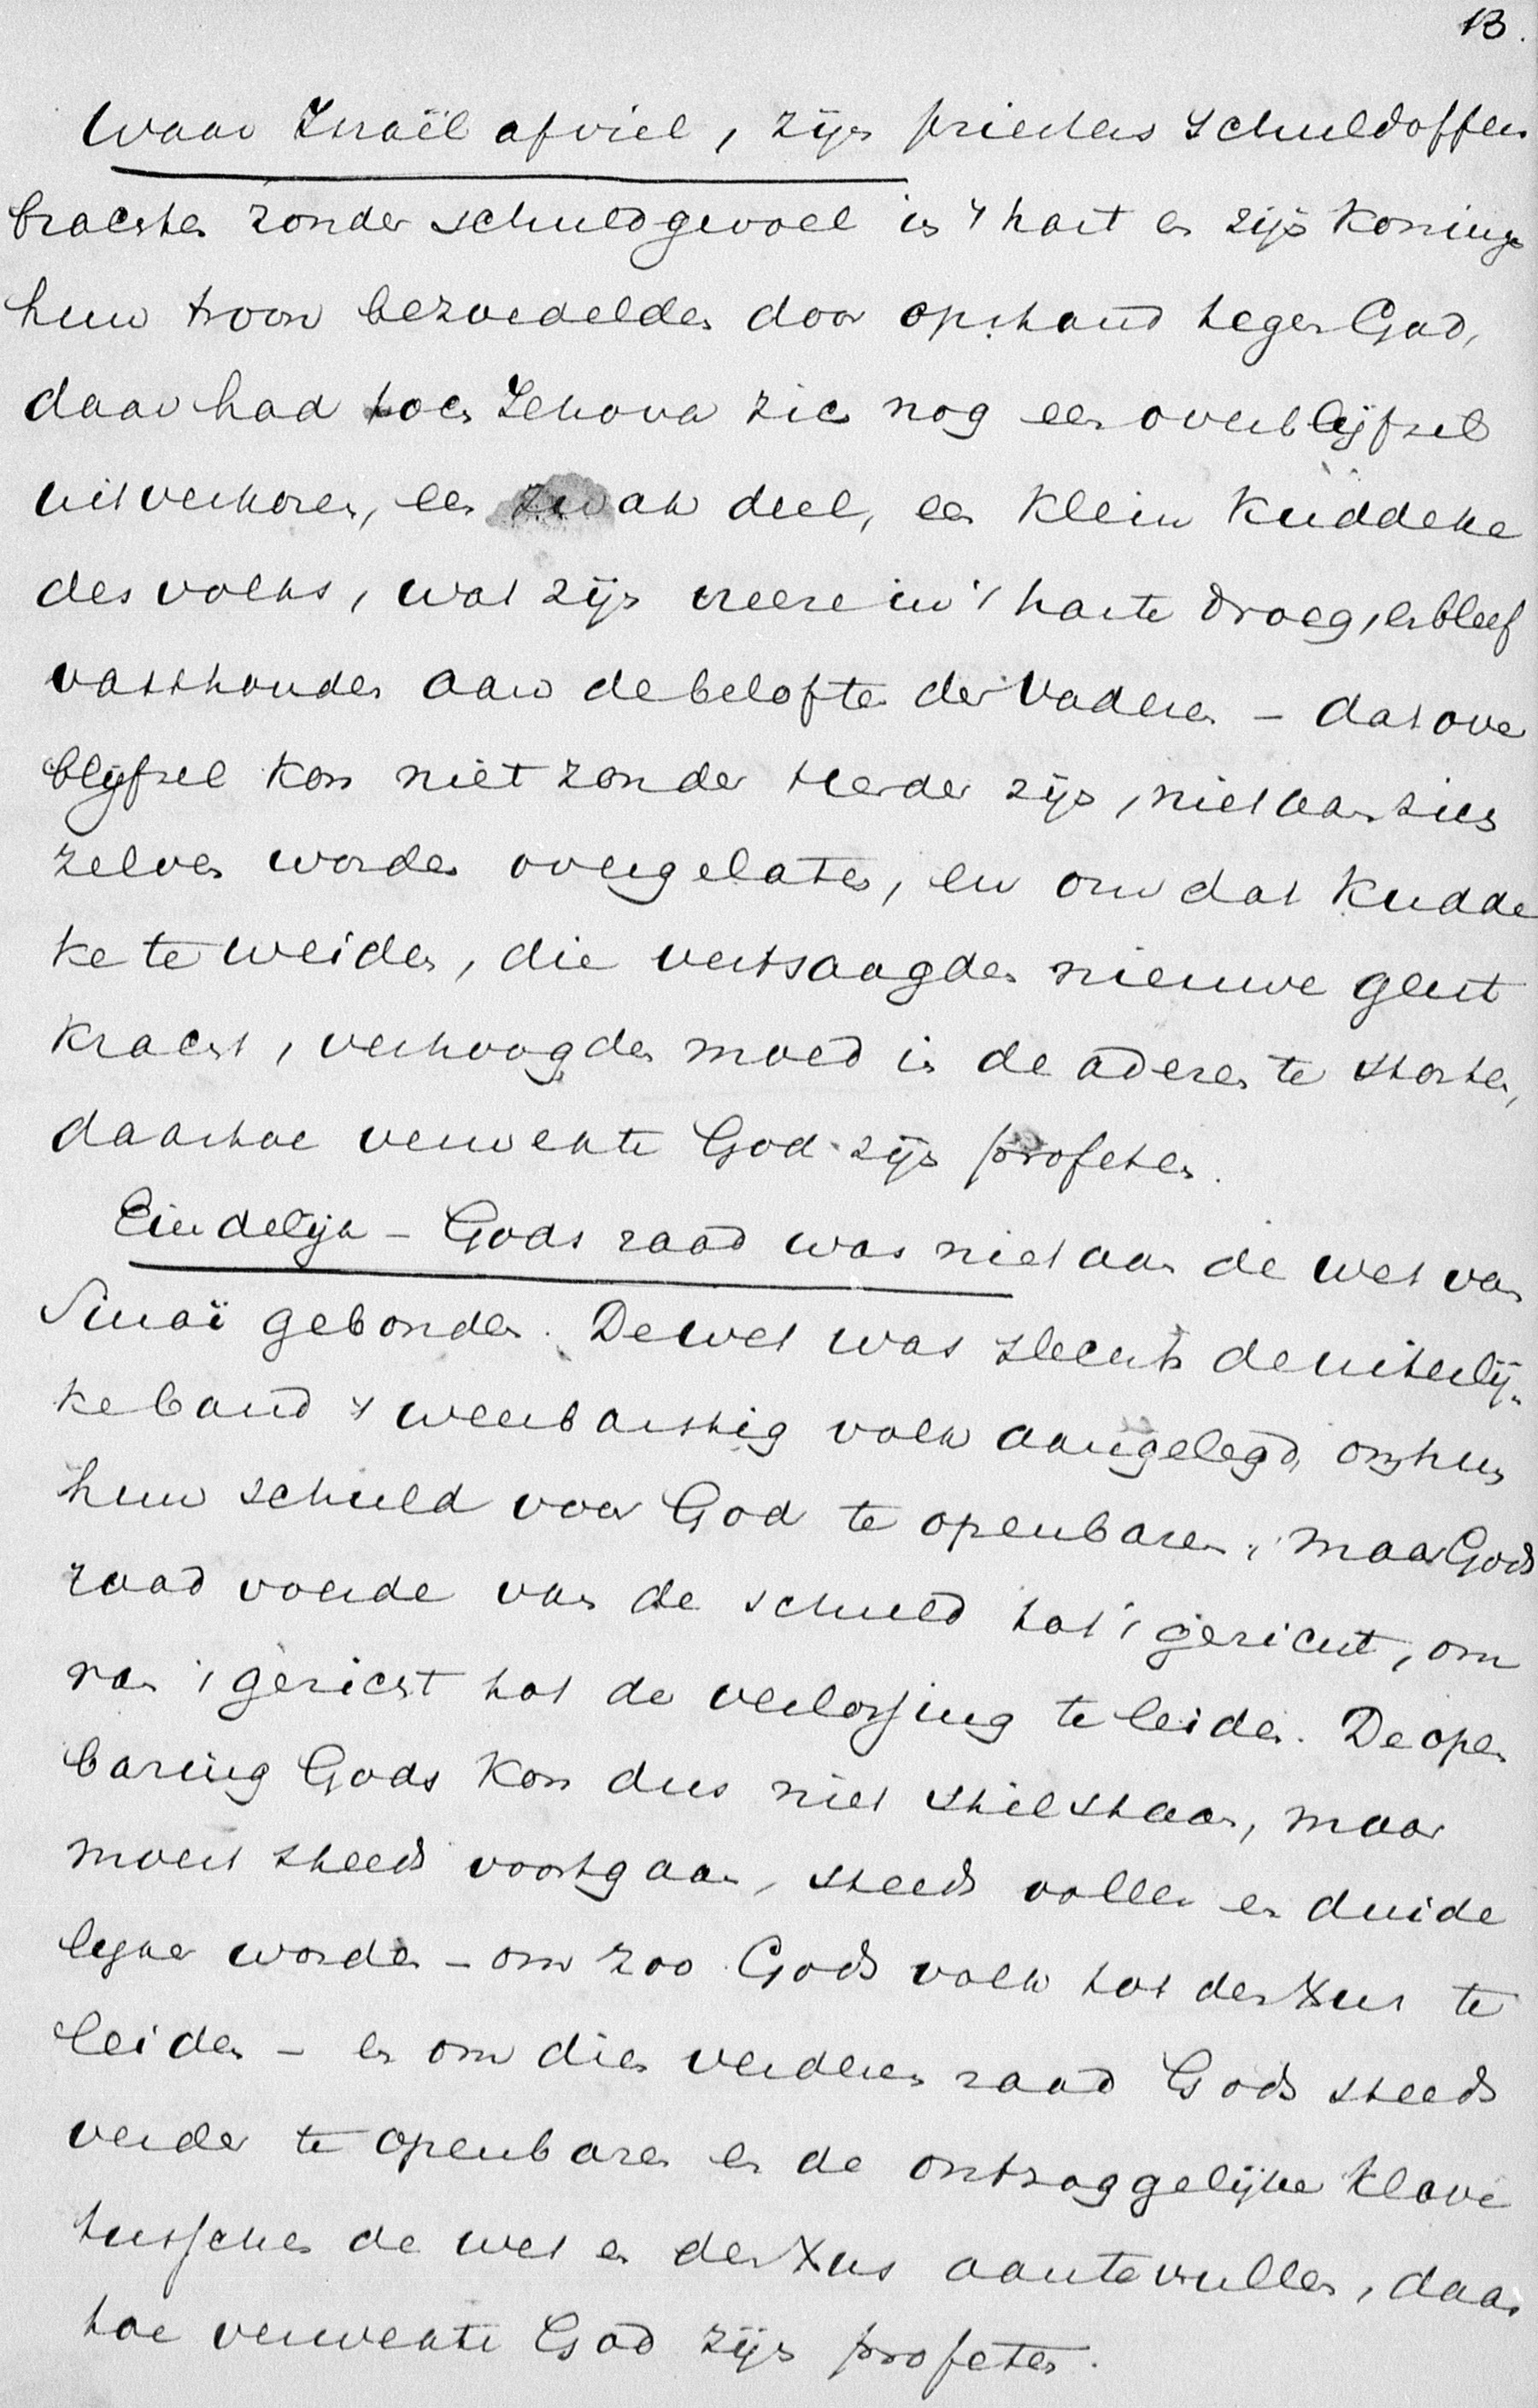 13.
Waar Israël afviel, zijn priesters schuldoffers
brachten zonder schuldgevoel in 't hart en zijn koningen
hun troon bezoedelden door opstand tegen God,
daar had toch Jehova zich nog een overblijfsel
uitverkoren, een zwak deel, een klein kuddeke
des volks, wat zijn vreeze in 't harte droeg, en bleef
vasthouden aan de beloften der Vaderen – dat over
blijfsel kon niet zonder Herder zijn, niet aan zich
zelven worden overgelaten, en om dat kudde
ke te weiden, die vertsaagden nieuwe geest
kracht, verhoogden moed in de aderen te storten,
daartoe verwekte God zijn profeten.
Eindelijk – Gods raad was niet aan de wet van
Sinaï gebonden. De wet was slechts de uiterlij-
ke band 't weerbarstig volk aangelegd, om hun
hun schuld voor God te openbaren, maar Gods
raad voerde van de schuld tot 't gericht, om
van 't gericht tot de verlossing te leiden. De open
baring Gods kon dus niet stilstaan, maar
moest steeds voortgaan, steeds voller en duide
lijker worden – om zoo Gods volk tot den Xus te
leiden – en om dien verderen raad Gods steeds
verder te openbaren en de ontsaggelijke klove
tusschen de wet en den Xus aantevullen, daar
toe verwekte God zijn profeten.